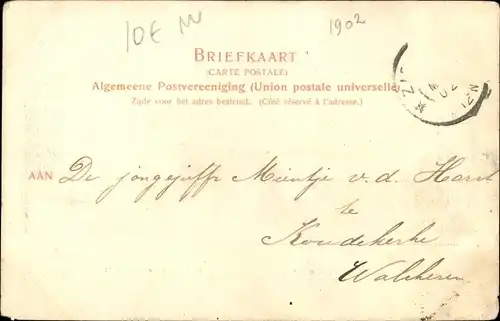 1902
BRIEFKAART
(CARTE POSTALE)
Algemeene Postvereeniging (Union postale universelle)
Zijde voor het adres bestemd. (Côté réservé à l'adresse.)
AAN De jongejuffr Mientje v.d. Horst
te
Koudekerke
Walcheren